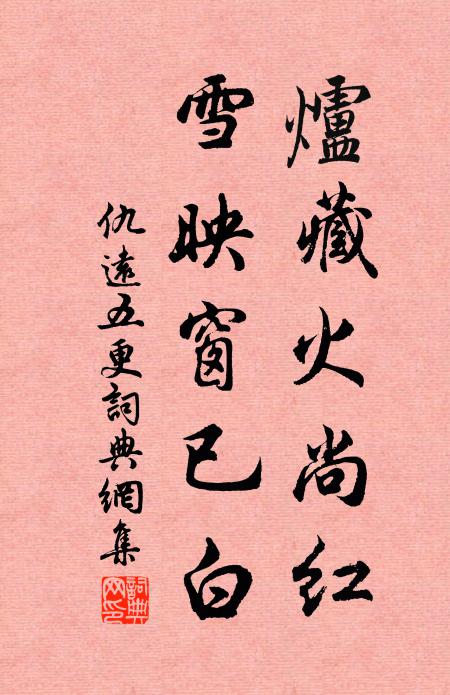 爐藏火尚紅
雪映窗已白
仇遠五更詞典網集
詞典網印